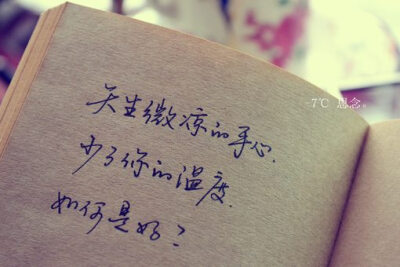 7℃ 思念。
天生微凉的手心.
少了你的温度.
如何是好?